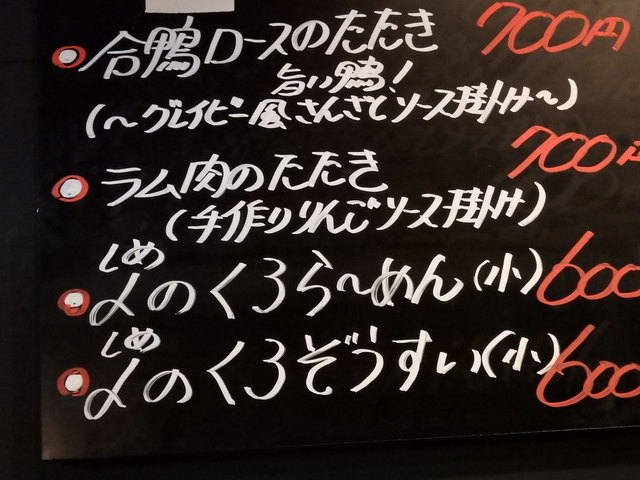 合鴨ロースのたたき 700円
旨い鴨!
(～グレイビー風さんざしソース掛け～)
ラム肉のたたき 700円
(手作りりんごソース掛け)
しめ
〆のくろら～めん(小) 600
しめ
〆のくろぞうすい(小) 600